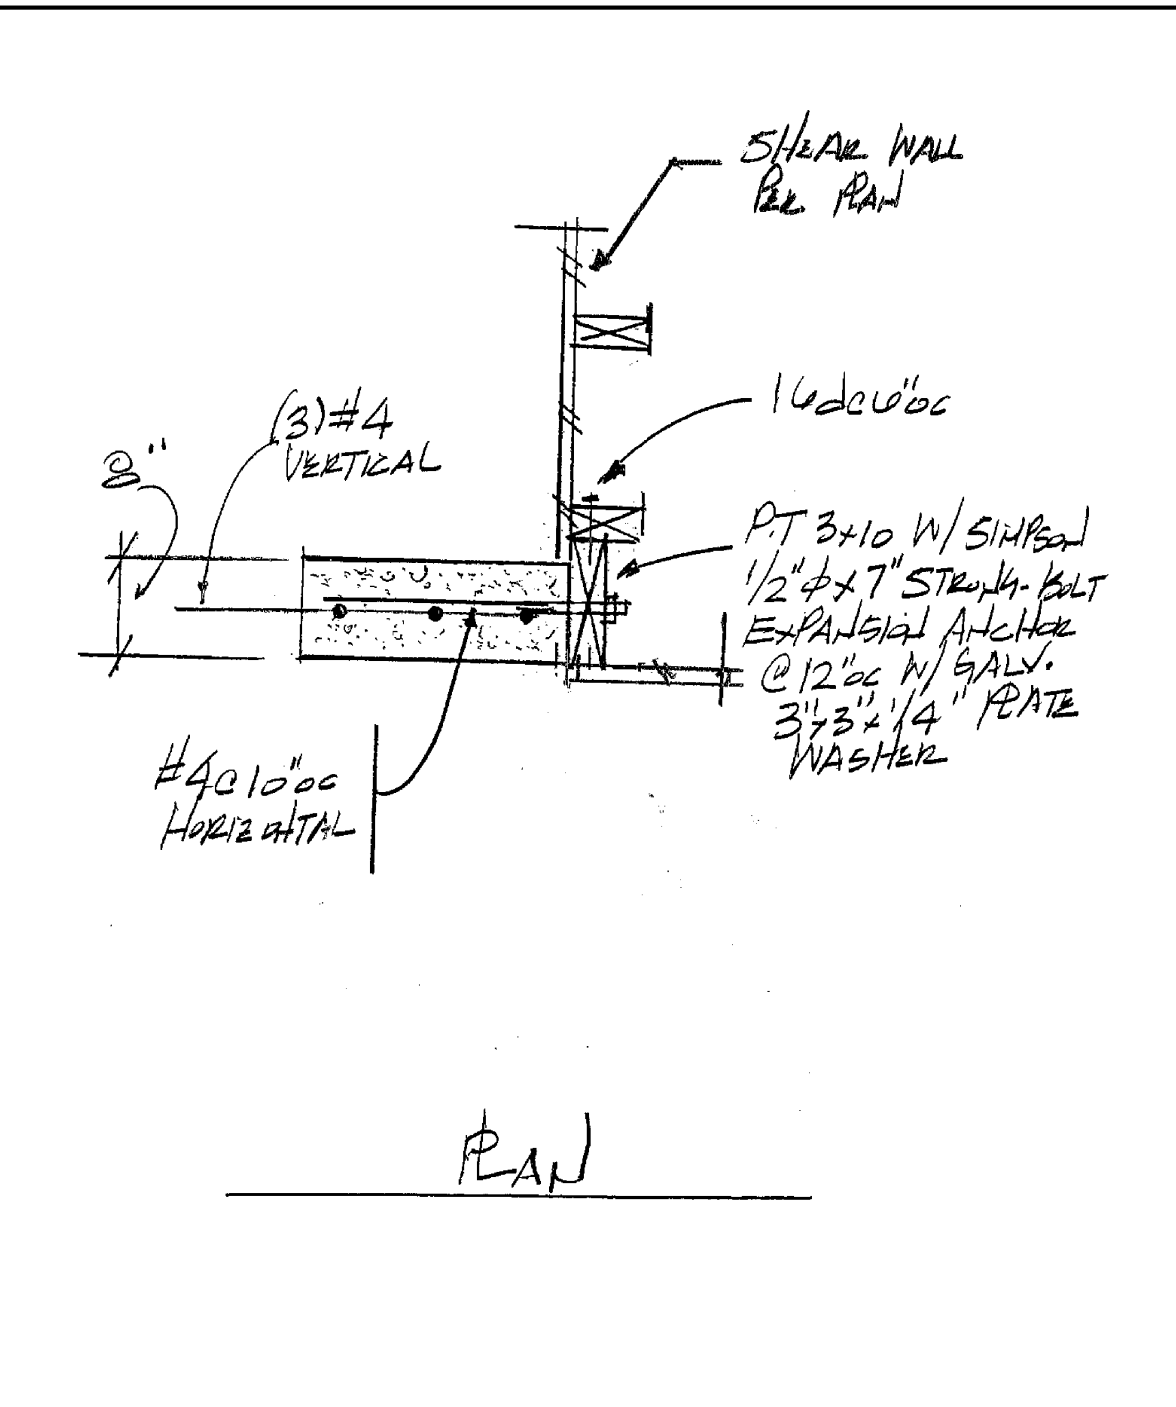 SHEAR WALL
PER PLAN
16d@6"oc
(3)#4
VERTICAL
8"
P.T 3x10 W/ SIMPSON
1/2"ϕ x 7" STRONG-BOLT
EXPANSION ANCHOR
@ 12"oc W/ GALV.
3"x3"x1/4" PLATE
WASHER
#4@10"oc
HORIZONTAL
PLAN